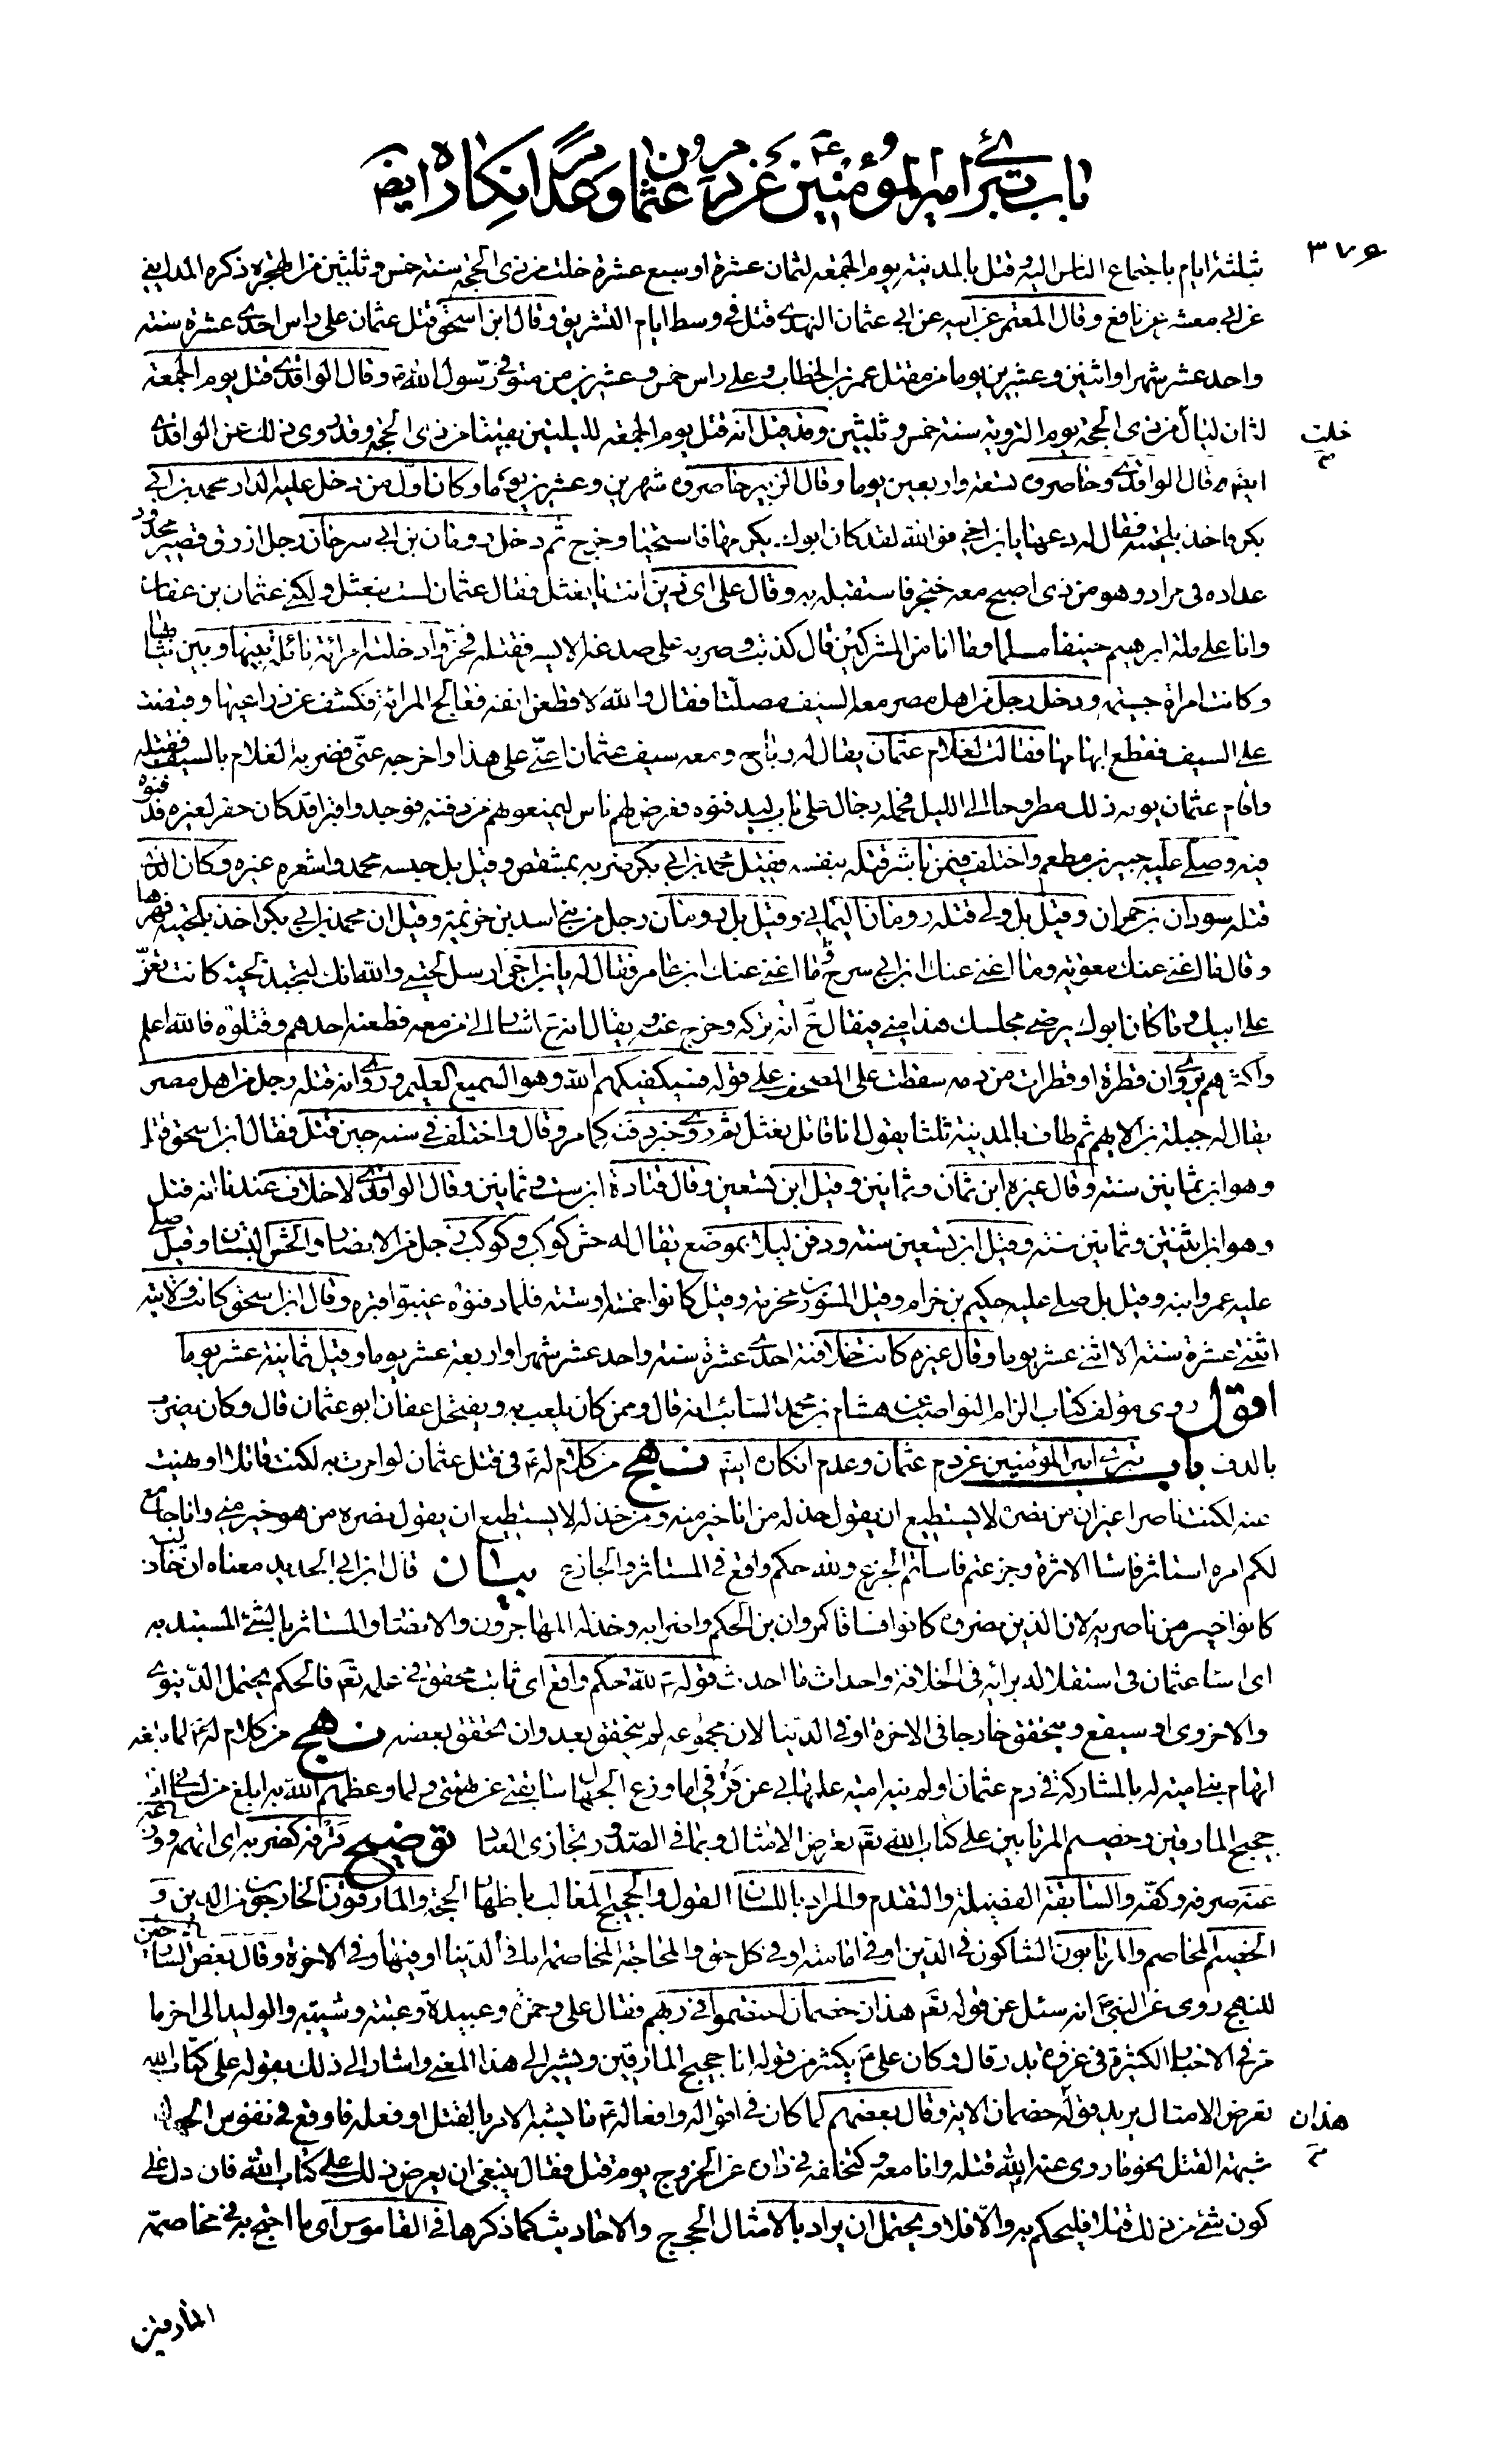 باب تبرى امير المؤمنين ع عن دم عثمان وعدم انكاره ايضا
٣٧٥
بثلثة ايام باجتماع الناس اليه وقتل بالمدينة يوم الجمعة لثمان عشرة او سبع عشرة خلت من ذى الحجة سنة خمس وثلثين من الهجرة ذكره المدايني
عن ابي معشر عن نافع وقال المعتمر عن ابيه عن ابي عثمان النهدى قتل في وسط ايام التشريق وقال ابن اسحق قتل عثمان على راس احدى عشرة سنة
واحد عشر شهرا واثنين وعشرين يوما من مقتل عمر بن الخطاب وعلى راس خمس وعشرين من متوفى رسول الله ص وقال الواقدى قتل يوم الجمعة
لثمان ليال من ذى الحجة يوم التروية سنة خمس وثلثين وقد قيل انه قتل يوم الجمعة لليلتين بقيتا من ذى الحجة وقد روى ذلك عن الواقدى
خلت
ايضا قال الواقدى وحاصروه تسعة واربعين يوما وقال الزبير حاصروه شهرين وعشرين يوما وكان اول من دخل عليه الدار محمد بن ابي
بكر فاخذ بلحيته فقال له دعها يا بن اخي فو الله لقد كان ابوك يكرمها فاستحيا وخرج ثم دخل رومان بن ابي سرحان رجل ازرق قصير محدود
عداده في مراد وهو من ذى اصبح معه خنجر فاستقبله به وقال على اى دين انت يا نعثل فقال عثمان لست بنعثل ولكني عثمان بن عفان
وانا على ملة ابرهيم حنيفا مسلما وما انا من المشركين قال كذبت وضربه على صدغه الايسر فقتله فخر وادخلته امراته نائلة بينها وبين ثيابها
وكانت امراة جسيمة ودخل رجل من اهل مصر معه السيف مصلتا فقال والله لاقطعن انفه فعالج المراة فكشف عن ذراعيها وقبضت
على السيف فقطع ابهامها فقالت لغلام عثمان يقال له رباح ومعه سيف عثمان اعنى على هذا واخرجه عنى فضربه الغلام بالسيف فقتله
واقام عثمان يومه ذلك مطروحا الى الليل فحمله رجال على باب ليدفنوه فعرض لهم ناس ليمنعوهم من دفنه فوجدوا قبرا قد كان حفر لغيره فدفنوه
فيه وصلى عليه جبير بن مطعم واختلف فيمن باشر قتله بنفسه فقيل محمد بن ابي بكر ضربه بمشقص وقيل بل حبسه محمد واشعره غيره وكان الذى
قتله سودان بن حمران وقيل بل ولى قتله رومان اليماني وقيل بل رومان رجل من بني اسد بن خزيمة وقيل ان محمد بن ابي بكر اخذ بلحيته فهزها
وقال ما اغنى عنك معوية وما اغنى عنك ابن ابي سرح وما اغنى عنك ابن عامر فقال له يا بن اخي ارسل لحيتي والله انك لتجبذ لحية كانت تعز
على ابيك وما كان ابوك يرضى مجلسك هذا مني فيقال ح انه تركه وخرج عنه ويقال انه ح اشار الى من معه فطعنه احدهم وقتلوه فالله اعلم
واكثرهم يروى ان قطرة او قطرات من دمه سقطت على المصحف على قوله فسيكفيكهم الله وهو السميع العليم وروى انه قتله رجل من اهل مصر
يقال له جبلة بن الايهم ثم طاف بالمدينة ثلثا يقول انا قاتل نعثل ثم روى خبر دفنه كما مر وقال واختلف في سنه حين قتل فقال ابن اسحق قتل
وهو ابن ثمانين سنة وقال غيره ابن ثمان وثمانين وقيل ابن تسعين وقال قتادة ابن ست وثمانين وقال الواقدى لا خلاف عندنا انه قتل
وهو ابن اثنتين وثمانين سنة وقيل ابن تسعين سنة ودفن ليلا بموضع يقال له حش كوكب وكوكب رجل من الانصار والحش البستان وقيل صلى
عليه عمرو ابنه وقيل بل صلى عليه حكيم بن حزام وقيل المسور بن مخرمة وقيل كانوا خمسة او ستة فلما دفنوه غيبوا قبره وقال ابن اسحق كانت ولايته
اثنتي عشرة سنة الا اثني عشر يوما وقال غيره كانت خلافته احدى عشرة سنة واحد عشر شهرا واربعة عشر يوما وقيل ثمانية عشر يوما
اقول روى مؤلف كتاب الزام النواصب عن هشام بن محمد السائب انه قال وممن كان يلعب به ويفتحل عفان ابو عثمان قال وكان يضرب
بالدف باب تبرى امير المؤمنين عن دم عثمان وعدم انكاره ايضا نهج من كلام له ع في قتل عثمان لو امرت به لكنت قاتلا او نهيت
عنه لكنت ناصرا غير ان من نصره لا يستطيع ان يقول خذله من انا خير منه ومن خذله لا يستطيع ان يقول نصره من هو خير مني وانا جامع
لكم امره استاثر فاساء الاثرة وجزعتم فاساتم الجزع ولله حكم واقع في المستاثر والجازع بيان قال ابن ابي الحديد معناه ان خاذليه
كانوا خيرا من ناصريه لان الذين نصروه كانوا فساقا كمروان بن الحكم واضرابه وخذله المهاجرون والانصار والمستاثر بالشئ المستبد به
اى اساء عثمان في استقلاله برائه في الخلافة واحداث ما احدث قوله ع لله حكم واقع اى ثابت محقق في علمه تعم فالحكم يحتمل الدنيوى
والاخروى او سيقع ويتحقق خارجا في الاخرة او في الدنيا لان مجموعه لم يتحقق بعد وان تحقق بعضه نهج من كلام له ع لما بلغه
اتهام بني امية له بالمشاركة في دم عثمان او لم ينه امية علمها بي عن قرفي اما وزع الجهال سابقتي عن تهمتي ولما وعظهم الله به ابلغ من لساني انا
حجيج المارقين وخصيم المرتابين على كتاب الله تعم تعرض الامثال وبما في الصدور تجازى العباد توضيح قرفه كضربه اى اتهمه ووزعه
عنه صرفه وكفه والسابقة الفضيلة والتقدم والمراد باللسان القول والحجيج المغالب باظهار الحجة والمارقون الخارجون من الدين و
الخصيم المخاصم والمرتابون الشاكون في الدين او في امامته او في كل حق والمحاجة المخاصمة اما في الدنيا او فيها وفي الاخرة وقال بعض الشارحين
للنهج روى عن النبي ص انه سئل عن قوله تعم هذان خصمان اختصموا في ربهم فقال على وحمزة وعبيدة وعتبة وشيبة والوليد الى اخر ما
مر في الاخبار الكثيرة في غزوة بدر وقال وكان على ع يكثر من قوله انا حجيج المارقين ويشير الى هذا المعنى واشار الى ذلك بقوله على كتاب الله
تعرض الامثال يريد قوله خصمان الاية وقال بعضهم لما كان في اقواله وافعاله ع ما يشبه الامر بالقتل او فعله فاوقع في نفوس الجهال
هذان
شبهة القتل نحو ما روى عنه ع الله قتله وانا معه وكتخلفه في داره عن الخروج يوم قتل فقال ينبغي ان يعرض ذلك على كتاب الله فان دل على
كون شئ من ذلك قتلا فليحكم به والا فلا ويحتمل ان يراد بالامثال الحجج والاحاديث كما ذكرها في القاموس اى ما احتج به في مخاصمة
المارقين